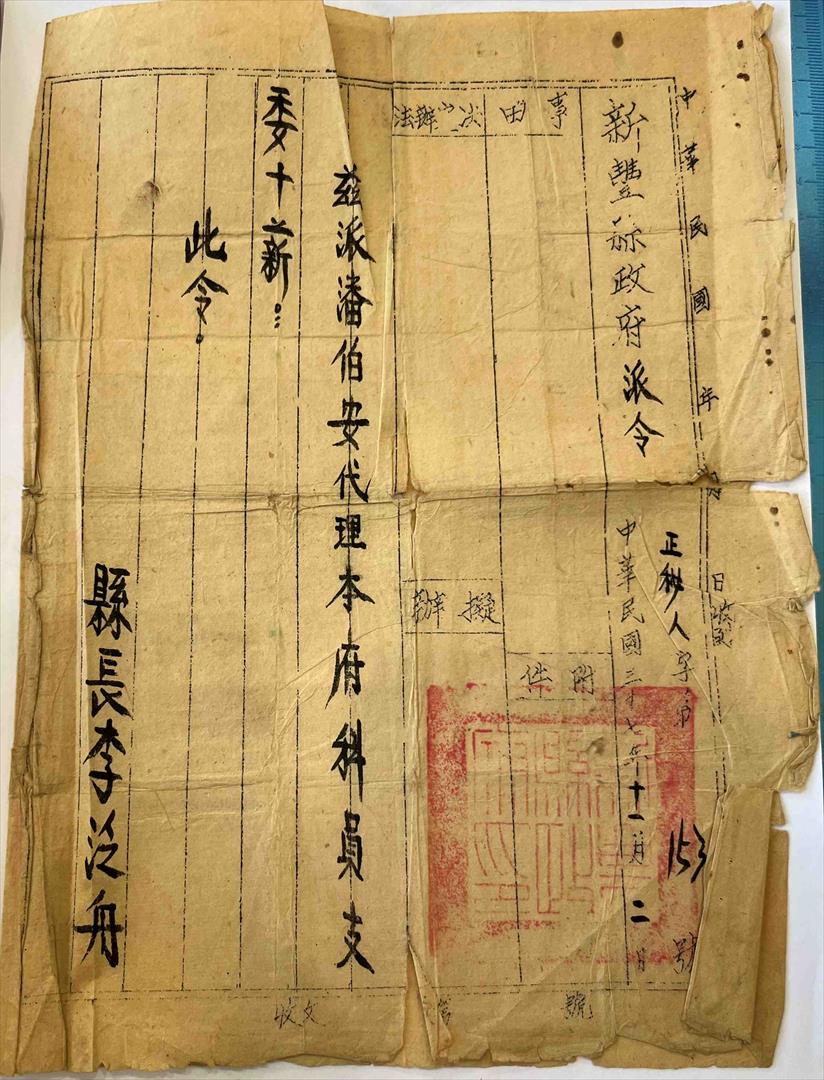 中華民國　年　月　日
新豐縣政府派令
正秘人字第153號
中華民國三十七年十一月二日
附件
事由
決辦法
擬辦
茲派潘伯安代理本府科員支
委十二薪：
此令。
縣長李泛舟
收文　號